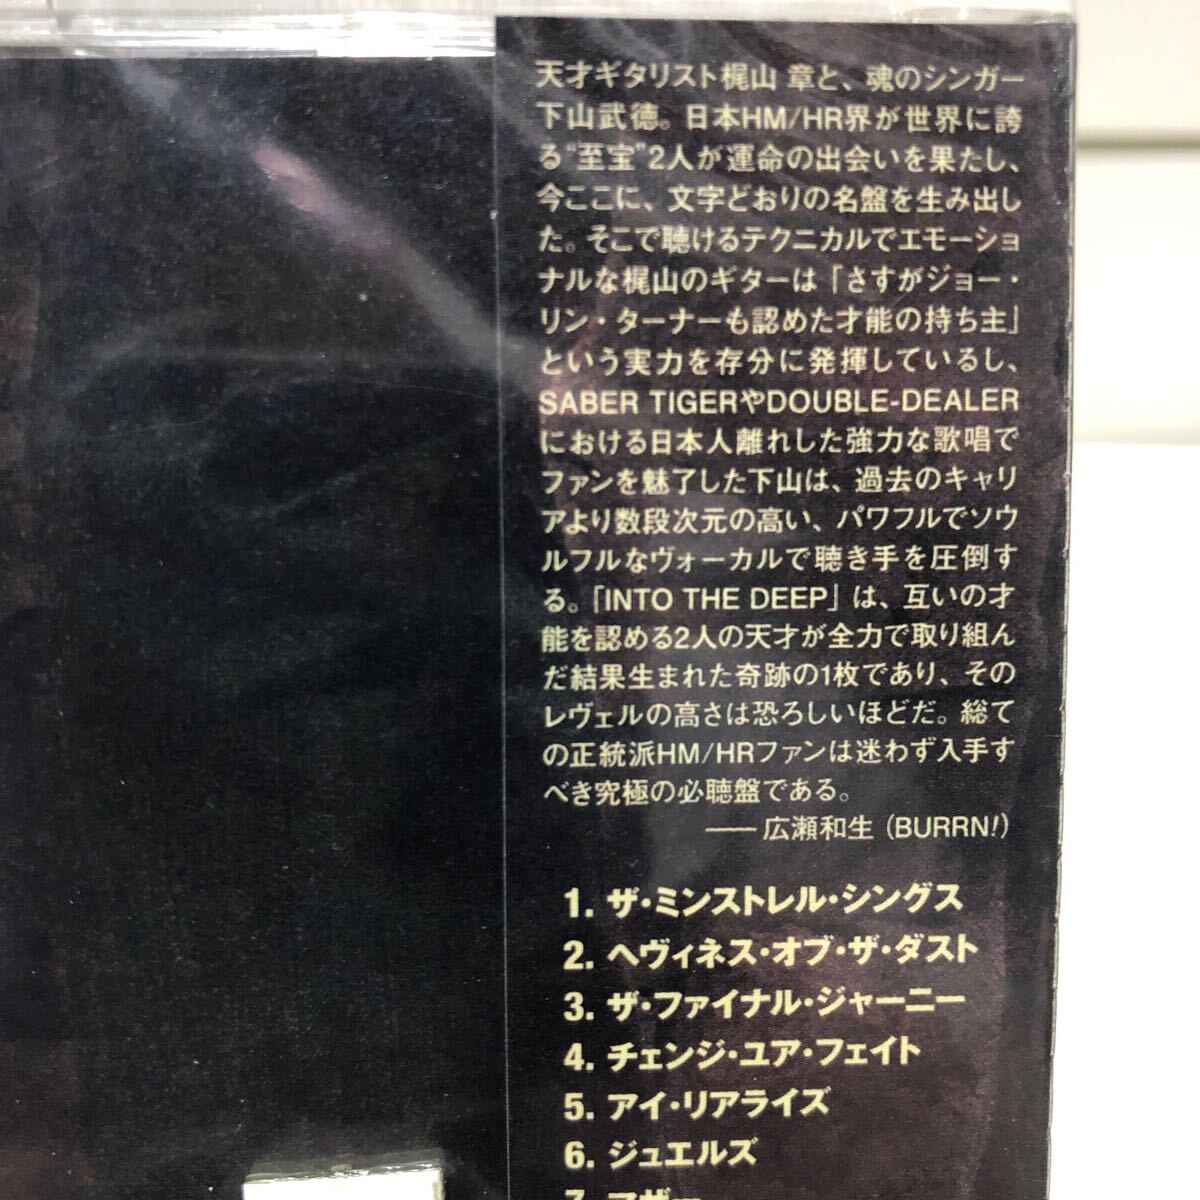 天才ギタリスト梶山 章と、魂のシンガー
下山武徳。日本HM/HR界が世界に誇
る“至宝”2人が運命の出会いを果たし、
今ここに、文字どおりの名盤を生み出し
た。そこで聴けるテクニカルでエモーショ
ナルな梶山のギターは「さすがジョー・
リン・ターナーも認めた才能の持ち主」
という実力を存分に発揮しているし、
SABER TIGERやDOUBLE-DEALER
における日本人離れした強力な歌唱で
ファンを魅了した下山は、過去のキャリ
アより数段次元の高い、パワフルでソウ
ルフルなヴォーカルで聴き手を圧倒す
る。「INTO THE DEEP」は、互いの才
能を認める2人の天才が全力で取り組ん
だ結果生まれた奇跡の1枚であり、その
レヴェルの高さは恐ろしいほどだ。総て
の正統派HM/HRファンは迷わず入手す
べき究極の必聴盤である。
── 広瀬和生（BURRN!）
1. ザ・ミンストレル・シングス
2. ヘヴィネス・オブ・ザ・ダスト
3. ザ・ファイナル・ジャーニー
4. チェンジ・ユア・フェイト
5. アイ・リアライズ
6. ジュエルズ
7. マザー